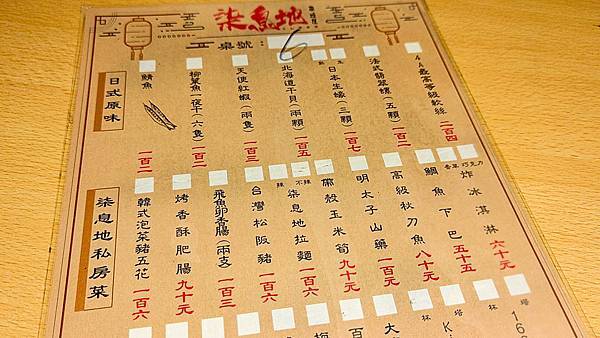 柒息地
桌號：6
日式原味
4A最高等級軟絲 二百四
法式翡翠螺（五顆）一百二
日本生蠔（三顆）一百七
北海道干貝（兩顆）一百五
天使紅蝦（兩隻）一百三
柳葉魚一夜干（六隻）一百二
鯖魚 一百二
柒息地私房菜
香草 巧克力
炸冰淇淋 六十元
鯛魚下巴 五十五
高級秋刀魚 八十元
明太子山藥 一百元
帶殼玉米筍 九十元
辣 不辣
柒息地拉麵 一百六
台灣松阪豬 一百六
飛魚卵香腸（兩支）一百三
烤香酥肥腸 九十元
韓式泡菜豬五花 一百六
塔
林
塔
林
16
Ki
大
百
梅